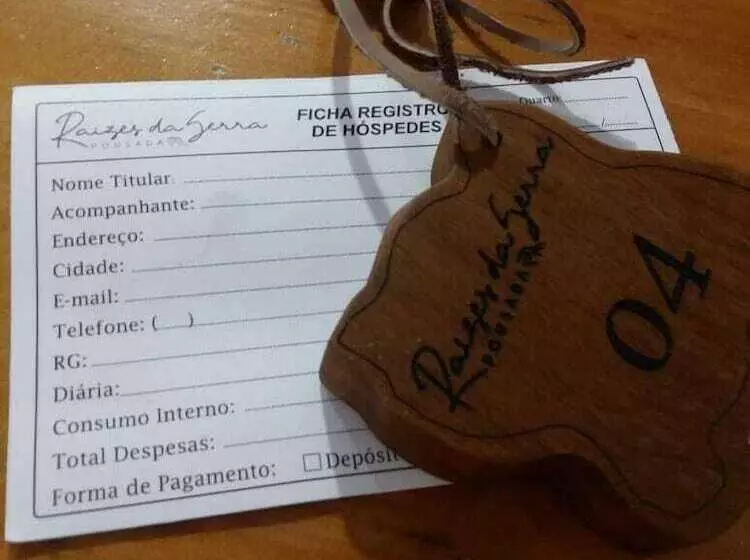 Raízes da Serra
POUSADA
FICHA REGISTRO
DE HÓSPEDES
Quarto:
/
Nome Titular
Acompanhante:
Endereço:
Cidade:
E-mail:
Telefone: ( )
RG:
Diária:
Consumo Interno:
Total Despesas:
Forma de Pagamento: Depósit
Raízes da Serra
POUSADA
04